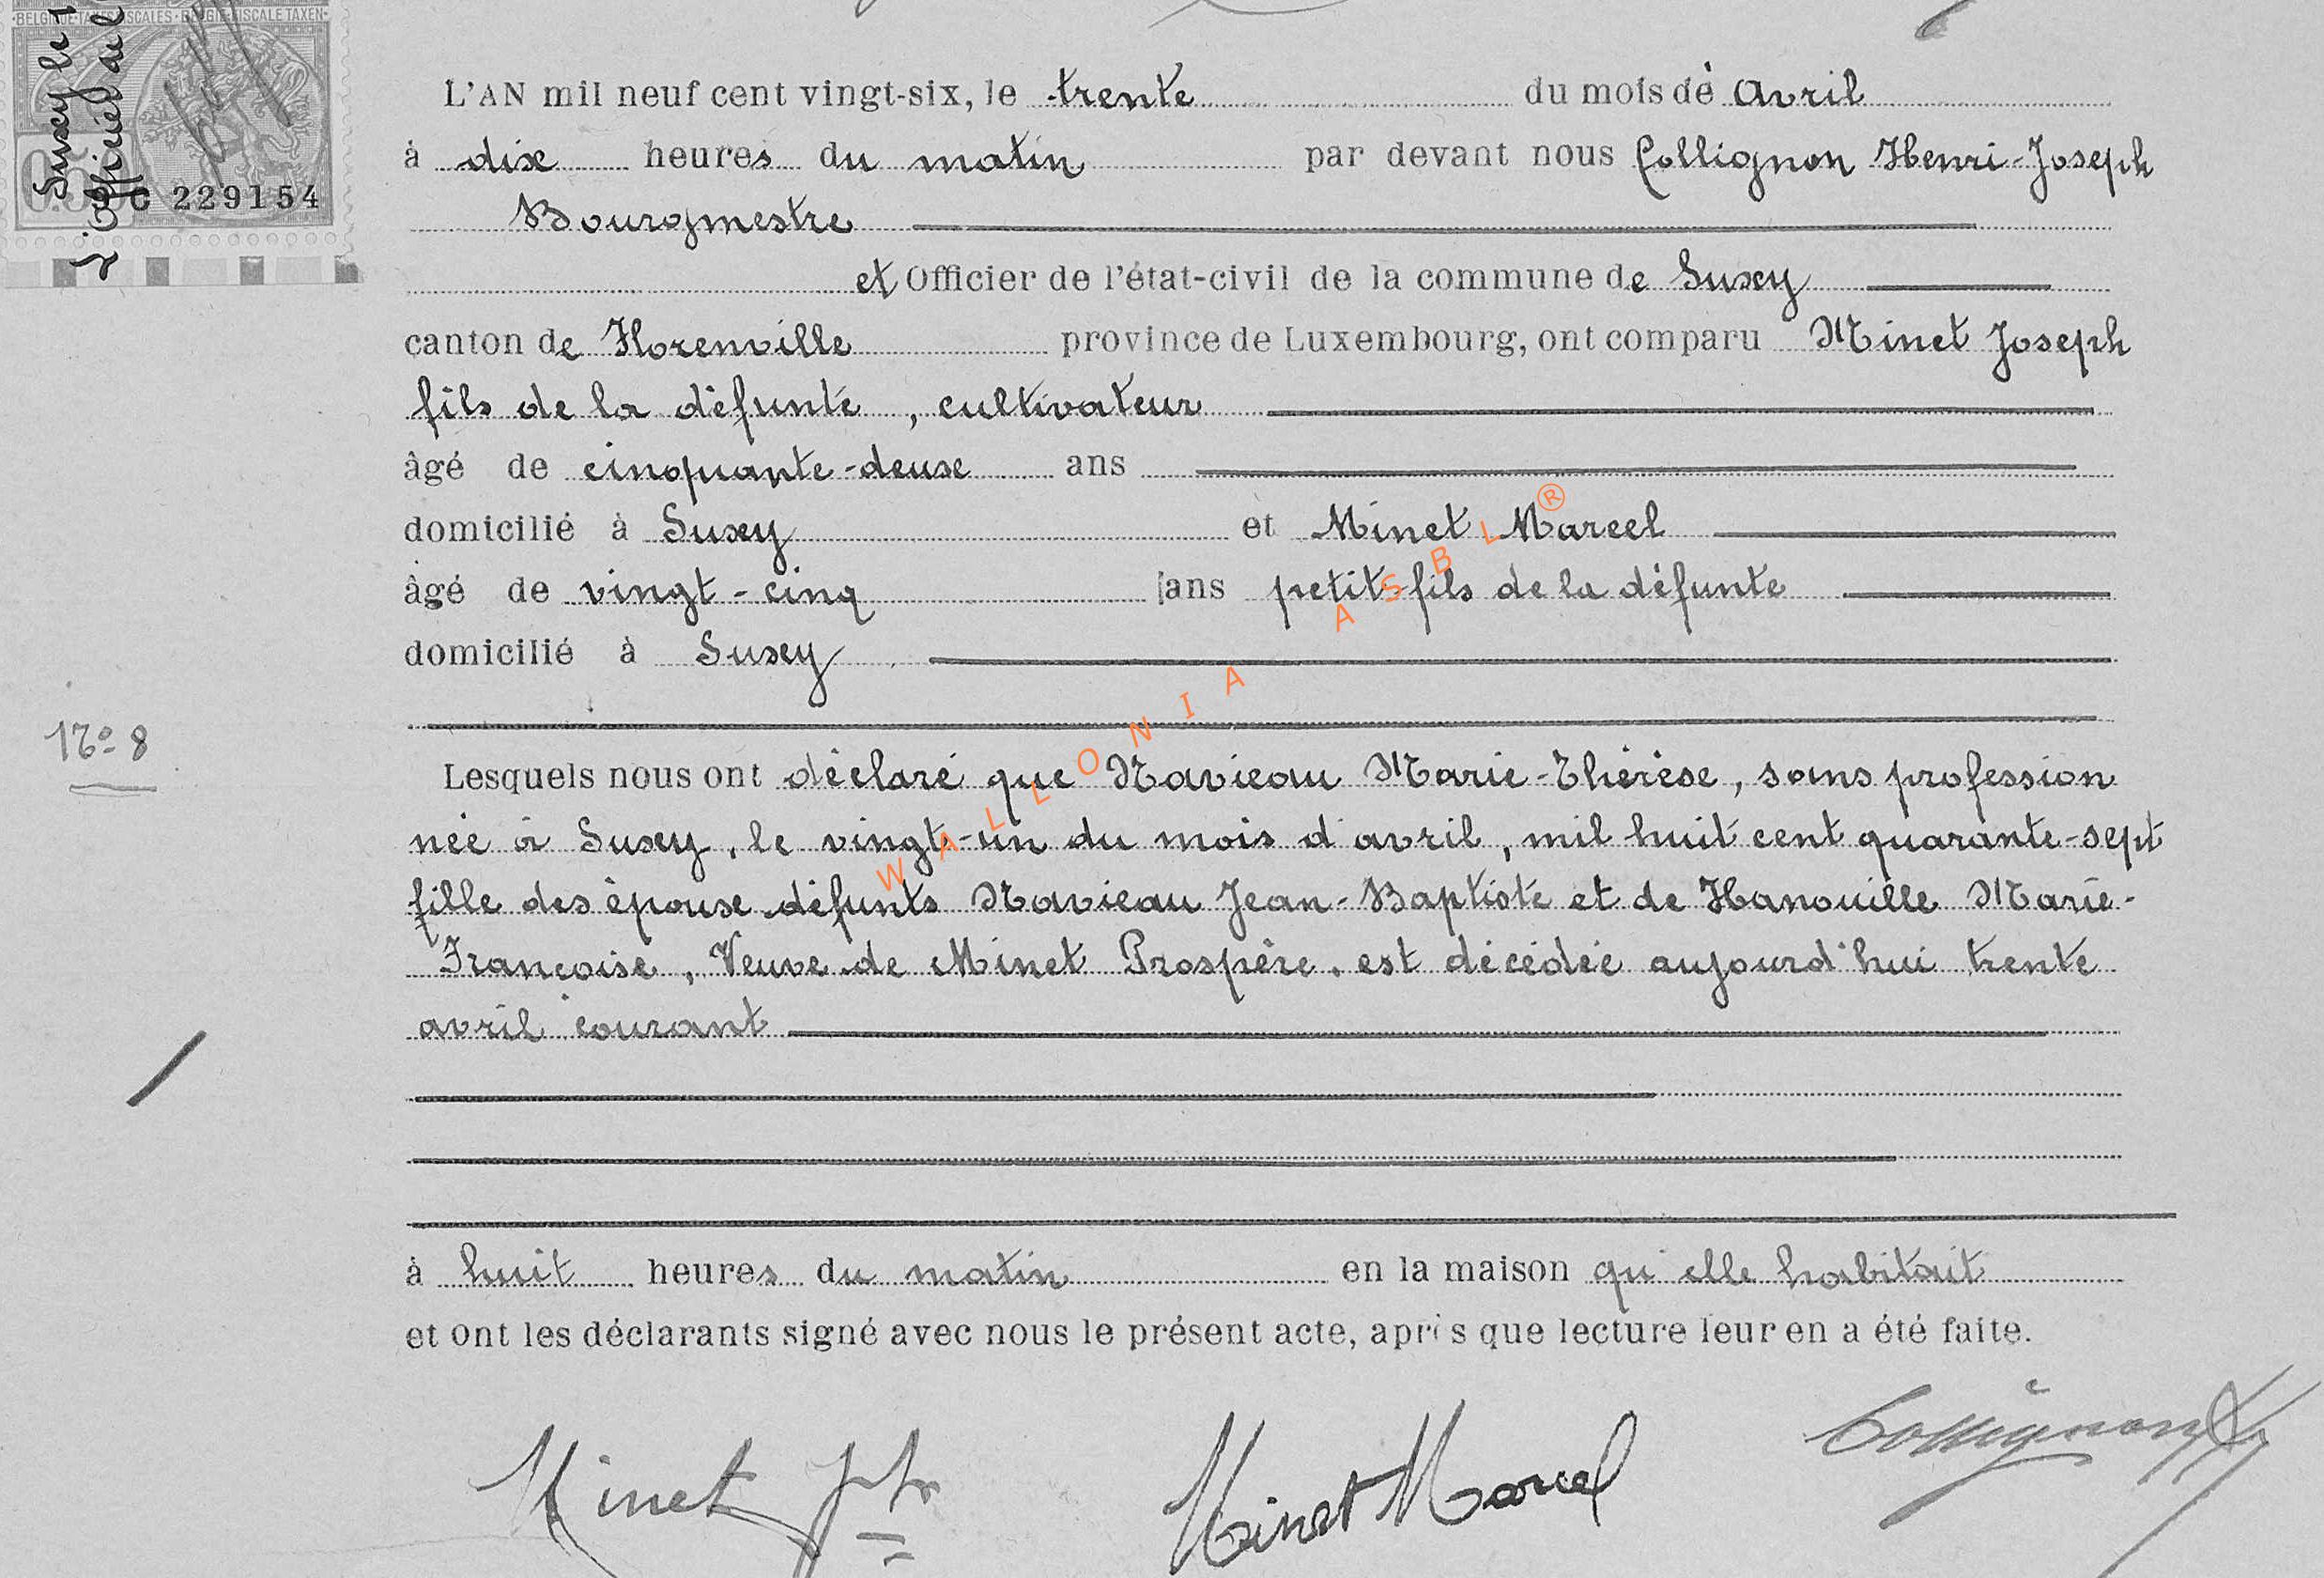 BELGIQUE-TAXES FISCALES - BELGIE-FISCALE TAXEN
Suxey le
l'officier de l
C 229154
L'AN mil neuf cent vingt-six, le trente du mois de Avril
à dix heures du matin par devant nous Collignon Henri-Joseph
Bourgmestre
et Officier de l'état-civil de la commune de Suxey
canton de Florenville province de Luxembourg, ont comparu Minet Joseph
fils de la défunte, cultivateur
âgé de cinquante-deuxe ans
domicilié à Suxey et Minet Marcel
âgé de vingt-cinq ans petit-fils de la défunte
domicilié à Suxey
N° 8
Lesquels nous ont déclaré que Navieau Marie-Thérèse, sans profession
née à Suxey, le vingt-un du mois d'avril, mil huit cent quarante-sept
fille des époux défunts Navieau Jean-Baptiste et de Hanouille Marie-
Françoise, Veuve de Minet Prospère, est décédée aujourd'hui trente
avril courant
à huit heures du matin en la maison qu'elle habitait
et ont les déclarants signé avec nous le présent acte, après que lecture leur en a été faite.
Minet Jph Minet Marcel Collignon
WALLONIA ASBL®